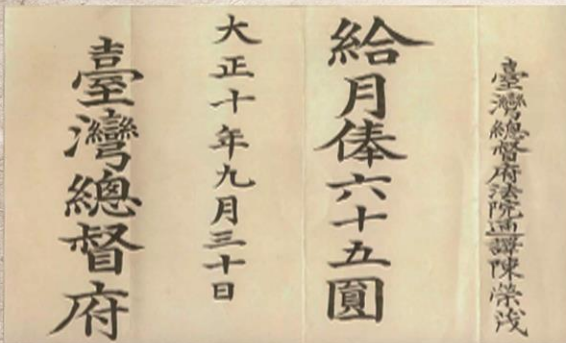 臺灣總督府法院通譯陳榮茂
給月俸六十五圓
大正十年九月三十日
臺灣總督府